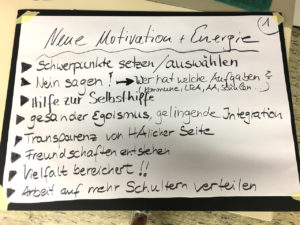 1
Neue Motivation + Energie
▶ Schwerpunkte setzen / auswählen
▶ Nein sagen! → Wer hat welche Aufgaben?
(Kommune, LRA, AA, ...)
▶ Hilfe zur Selbsthilfe
▶ gesunder Egoismus, gelingende Integration
▶ Transparenz von HAlicher Seite
▶ Freundschaften entstehen
▶ Vielfalt bereichert!!
▶ Arbeit auf mehr Schultern verteilen